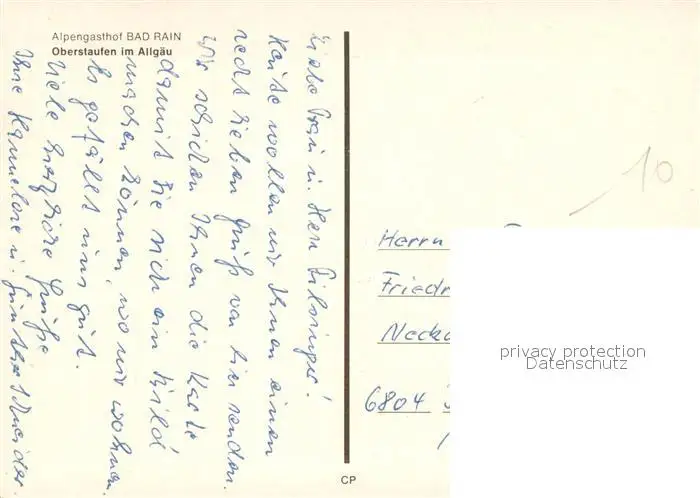 Alpengasthof BAD RAIN
Oberstaufen im Allgäu
Liebe Frau u. Herr
Heute wollen wir Ihnen einen
recht lieben Gruß von hier senden.
Wir schicken Ihnen die Karte
damit Sie sich ein Bild
machen können, wo wir wohnen.
Es gefällt uns gut.
Viele herzliche Grüße
Ihre Hannelore u. Günther Schneider.
CP
10
Herrn
Friedr
Necka
6804
privacy protection
Datenschutz